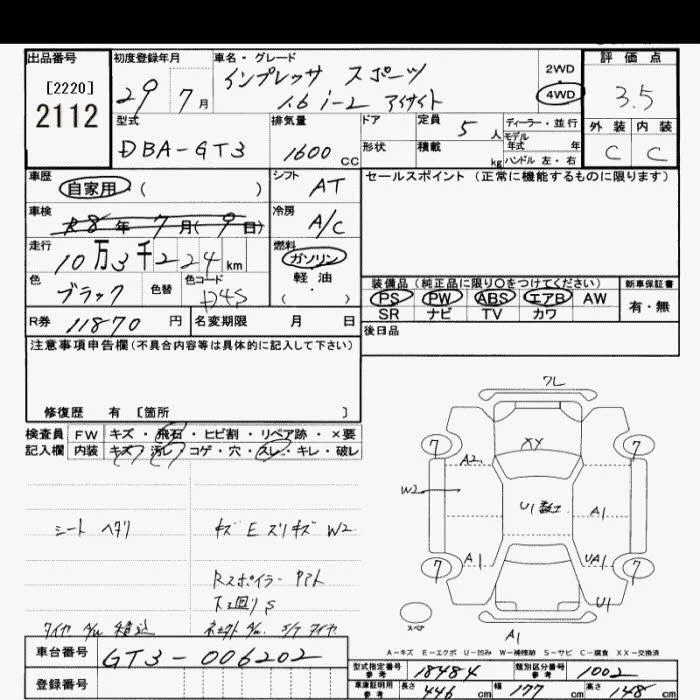 出品番号 初度登録年月 車名・グレード 評価点
[2220] 29 7月 インプレッサ スポーツ 2WD 3.5
2112 1.6 i-L アイサイト 4WD
型式 排気量 ドア 定員 5人 ディーラー・並行 外装 内装
DBA-GT3 1600cc 形状 積載 kg モデル年式 年 C C
ハンドル 左・右
車歴 自家用 ( ) シフト AT セールスポイント (正常に機能するものに限ります)
車検 R8年 7月(9日) 冷房 A/C
走行 10万3千224km 燃料 ガソリン
軽・油
( ・ )
色 ブラック 色替 色コード D4S
装備品 (純正品に限り○をつけてください) 新車保証書
PS PW ABS エアB AW 有・無
SR ナビ TV カワ
R券 11870円 名変期限 月 日 後日品
注意事項申告欄 (不具合内容等は具体的に記入して下さい)
修復歴 有 [箇所 ]
検査員 FW キズ・飛石・ヒビ割・リペア跡・×要
記入欄 内装 キズ・汚レ・コゲ・穴・スレ・キレ・破レ
シート ヘタリ キズ E ズリキズ W2
Rスポイラー
下回りS
タイヤ
7L
7 XY 7
A2
W2 U1 A1
A1 UA1
7 7
U1
スペア
A1
A-キズ E-エクボ U-凹み W-補修跡 S-サビ C-腐食 XX-交換済
車台番号 GT3-006202
登録番号
型式指定番号 参考 18484 類別区分番号 参考 1002
車庫証明用 参考 長さ 446cm 幅 177cm 高さ 148cm